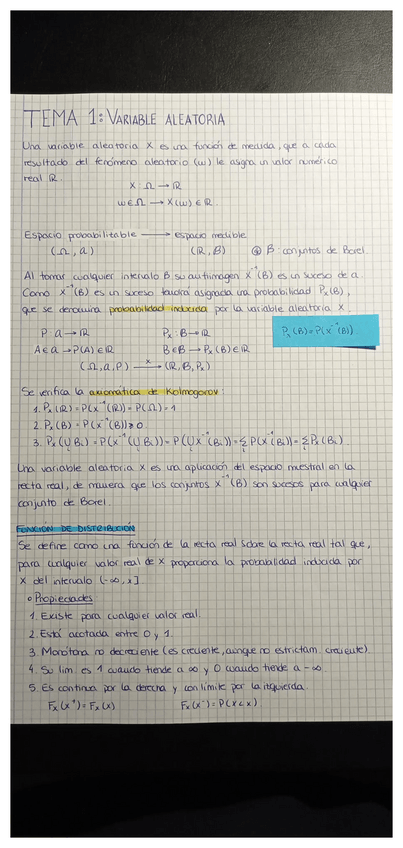 TEMA 1: VARIABLE ALEATORIA
Una variable aleatoria X es una función de medida, que a cada
resultado del fenómeno aleatorio (ω) le asigna un valor numérico
real ℝ.
X: Ω → ℝ
ω∈Ω → X(ω) ∈ ℝ.
Espacio probabilitable → espacio medible
(Ω, a) (ℝ, β) β: conjuntos de Borel.
Al tomar cualquier intervalo B su antiimagen X⁻¹(B) es un suceso de a
Como X⁻¹(B) es un suceso tendrá asignada una probabilidad Pₓ(B),
que se denomina probabilidad inducida por la variable aleatoria X.
P: a → ℝ Pₓ: β → ℝ Pₓ(B) = P(X⁻¹(B))
A∈a → P(A) ∈ ℝ B∈β → Pₓ(B) ∈ ℝ
(Ω, a, P) —X→ (ℝ, β, Pₓ)
Se verifica la axiomática de Kolmogorov:
1. Pₓ(ℝ) = P(X⁻¹(ℝ)) = P(Ω) = 1
2. Pₓ(B) = P(X⁻¹(B)) ≥ 0
3. Pₓ(∪ Bᵢ) = P(X⁻¹(∪ Bᵢ)) = P(∪X⁻¹(Bᵢ)) = Σᵢ P(X⁻¹(Bᵢ)) = Σᵢ Pₓ(Bᵢ)
Una variable aleatoria X es una aplicación del espacio muestral en la
recta real, de manera que los conjuntos X⁻¹(B) son sucesos para cualquier
conjunto de Borel.
FUNCIÓN DE DISTRIBUCIÓN
Se define como una función de la recta real sobre la recta real tal que,
para cualquier valor real de X proporciona la probabilidad inducida por
X del intervalo (-∞, x].
Propiedades
1. Existe para cualquier valor real.
2. Está acotada entre 0 y 1.
3. Monótona no decreciente (es creciente, aunque no estrictam. creciente).
4. Su lim. es 1 cuando tiende a ∞ y 0 cuando tiende a -∞.
5. Es continua por la derecha y con límite por la izquierda.
Fₓ(x⁺) = Fₓ(x) Fₓ(x⁻) = P(X<x)